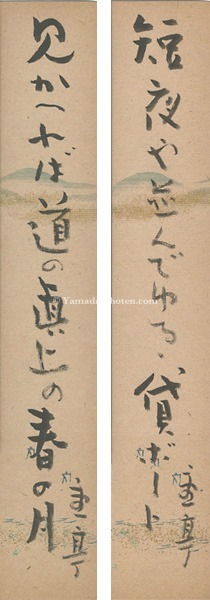 短夜や並んでゆる〻貸ボート
見かへれば道の眞上の春の月
© YamadaShoten.com